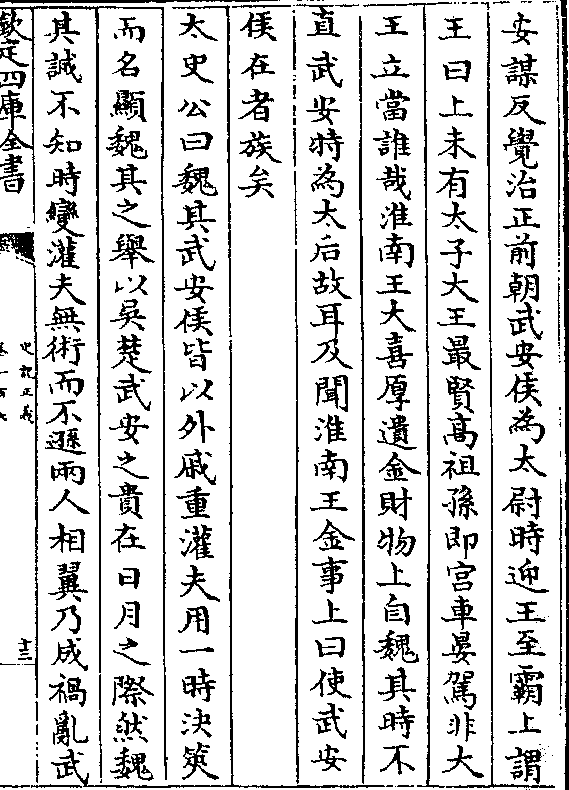 安謀反覺治正前朝武安侯為太尉時迎王至霸上謂
王曰上未有太子大王最賢髙祖孫即宫車晏駕非大
王立當誰哉淮南王大喜厚遺金財物上自魏其時不
直武安特為太后故耳及聞淮南王金事上曰使武安
侯在者族矣
太史公曰魏其武安侯皆以外戚重灌夫用一時決筴
而名顯魏其之舉以吳楚武安之貴在日月之際然魏
其誠不知時變灌夫無術而不遜兩人相翼乃成禍亂武
欽定四庫全書
史記正義
十三